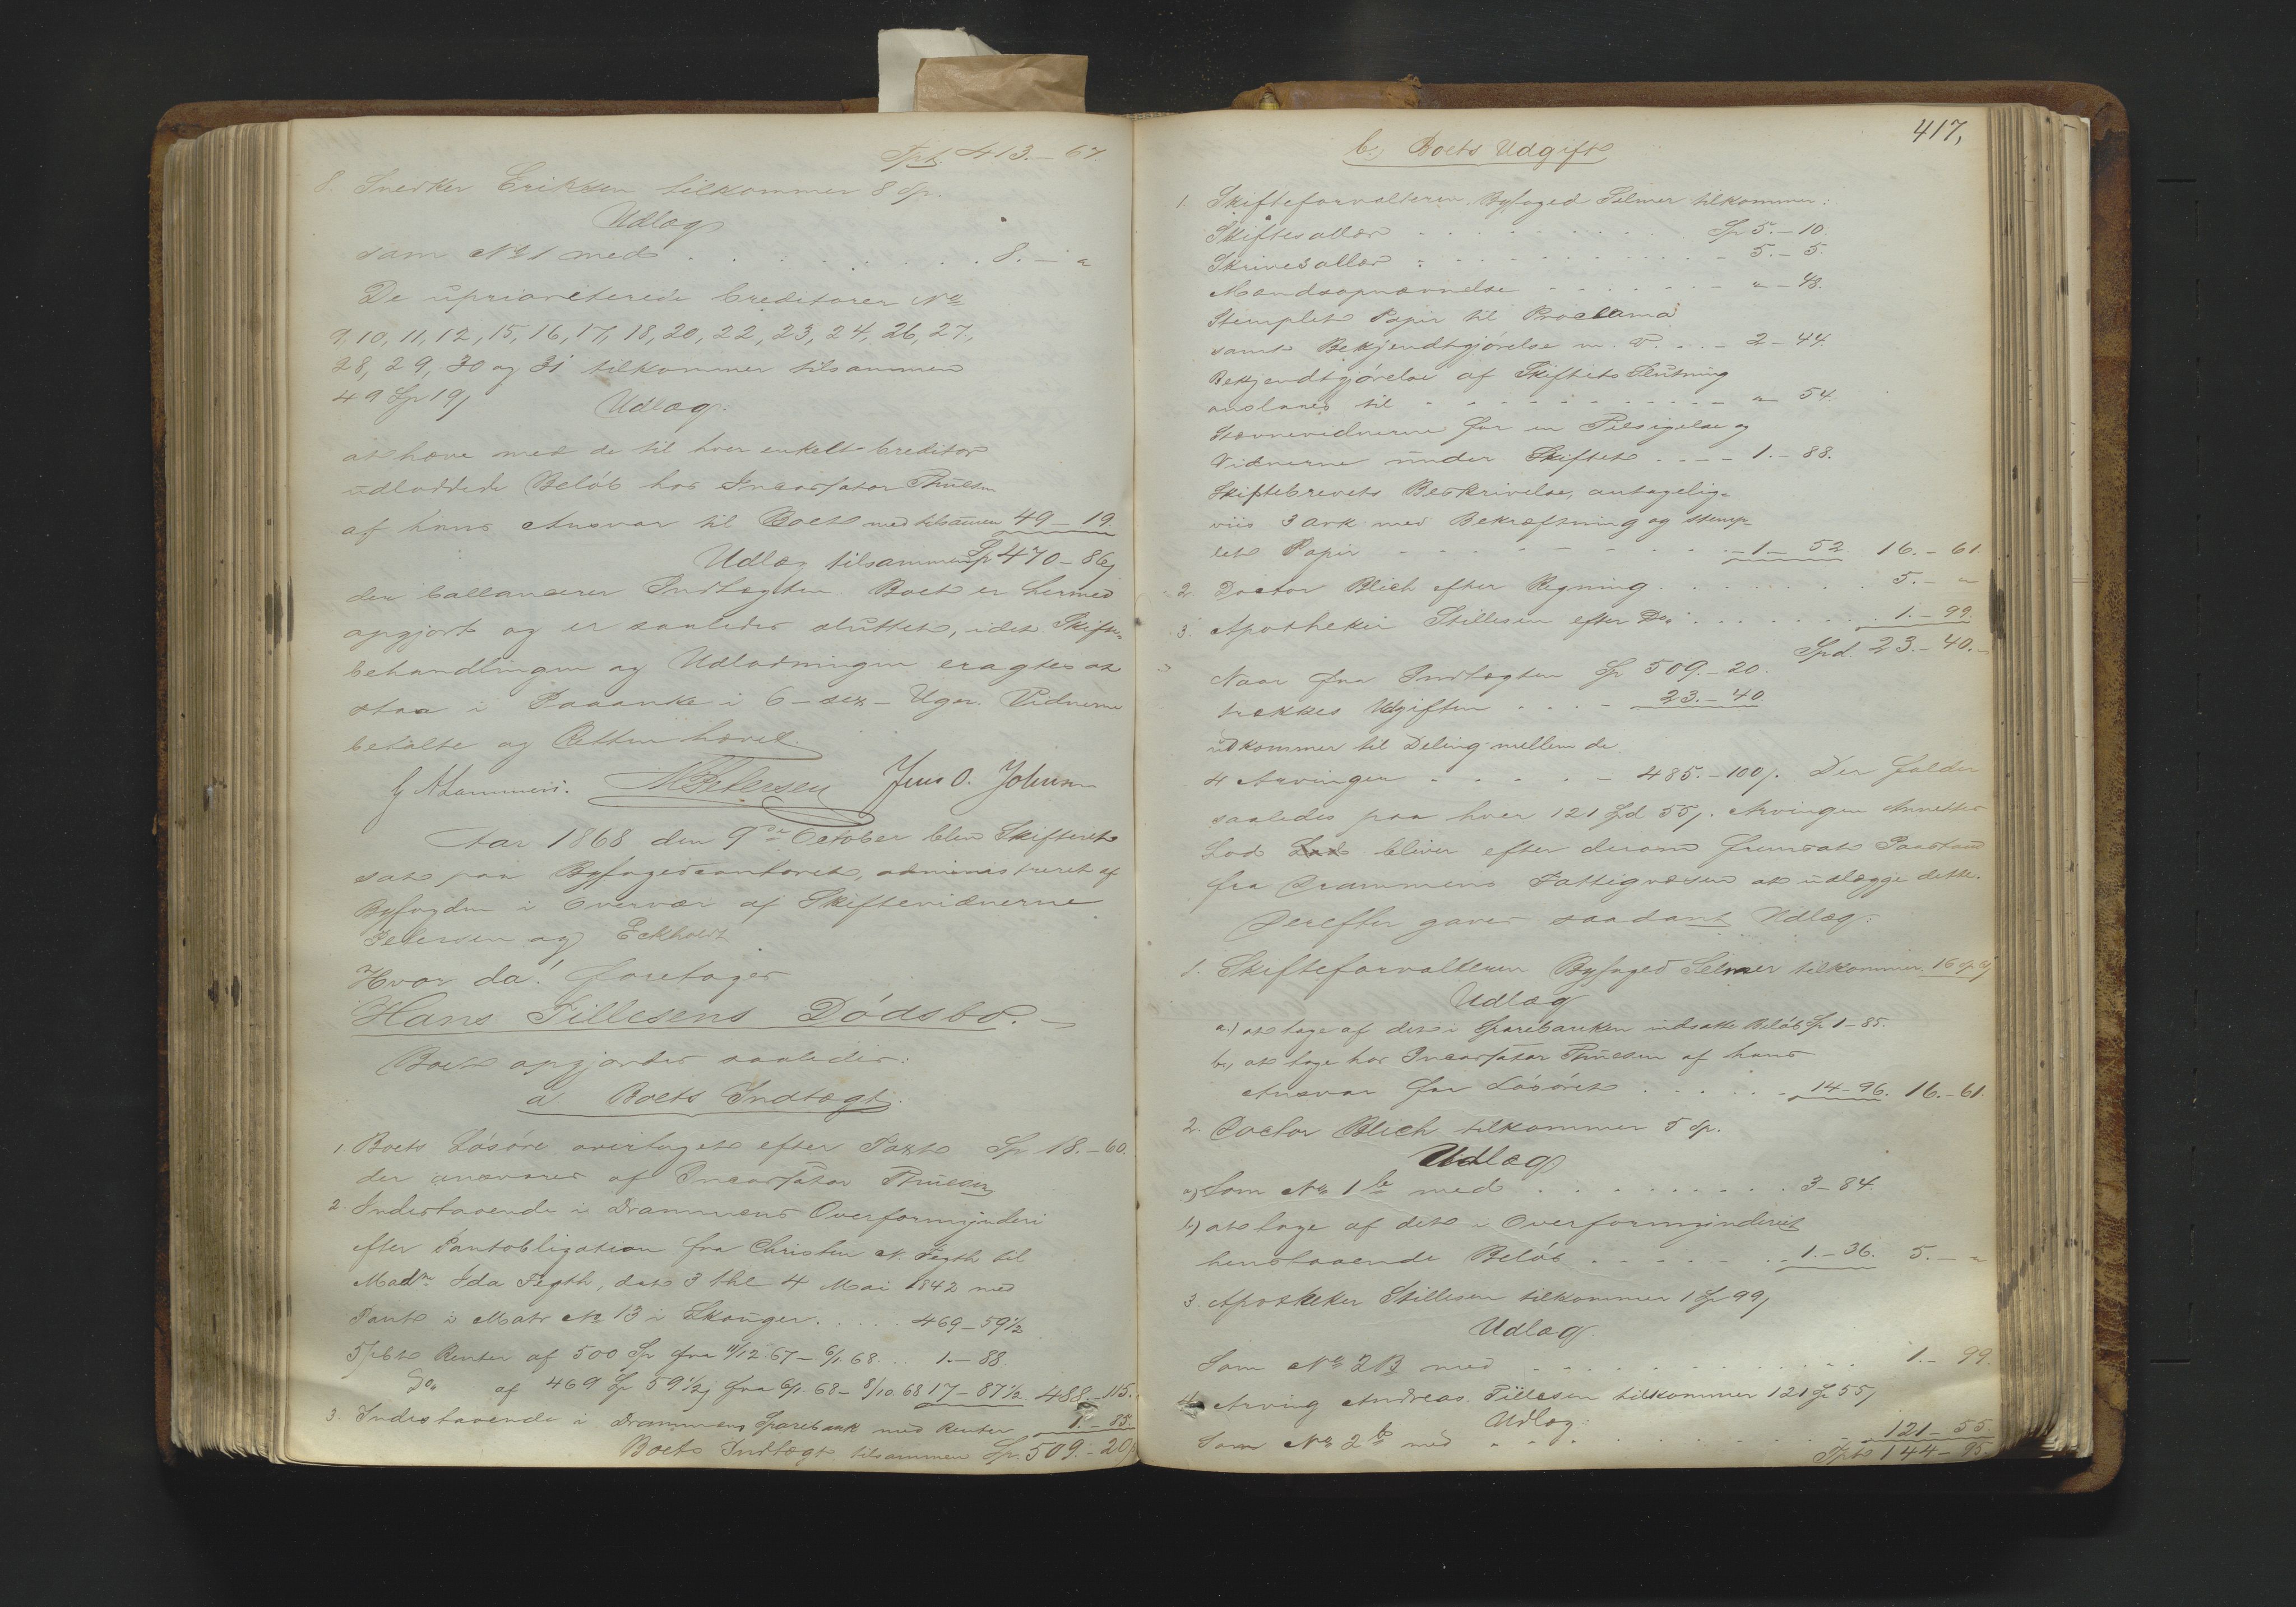 Tpt 413.-67.
8. Snedker Eriksen tilkommer 8 Sp.
Udlæg
som No 1 med . . . . . . . . . 8. - "
De uprioriterede Creditorer No
9, 10, 11, 12, 15, 16, 17, 18, 20, 22, 23, 24, 26, 27,
28, 29, 30 og 31 tilkommer tilsammen
49 Sp 19/
Udlæg:
at hæve med de til hver enkelt Creditor
udloddede Beløb hos Incassator Thuesen
af hans Ansvar til Boet med tilsammen 49 - 19.
Udlæg tilsammen Sp 470 - 86/
der ballancerer Indtægten. Boet er hermed
opgjort og er saaledes sluttet, idet Skifte-
behandlingen og Udlodningen eragtes at
staa i Paaanke i 6 - sex - Uger. Vidnerne
betalte og Retten hævet.
Lammers. Petersen Jens O. Johnsen
Aar 1868 den 9de October blev Skifteret
sat paa Byfogedcontoret, administreret af
Byfogden i Overvær af Skiftevidnerne
Petersen og Eckholdt
Hvor da! foretoges
Hans Tillesens Dødsbo. -
Boet opgjordes saaledes:
a. Boets Indtægt.
1 Boets Løsøre overtaget efter Taxt Sp 18. - 60.
der ansvares af Incassator Thuesen
2. Indestaaende i Drammens Overformynderi
efter Pantobligation fra Christen N. Fegth til
Madm. Ida Fegth, dat 3 thl 4 Mai 1842 med
Pant i Matr No 13 i Skouger. . . . . 469 - 59 1/2
5 pCt Renter af 500 Sp fra 11/12 67 - 6/1. 68. . . 1. - 88
Do af 469 Sp 59 1/2/ fra 6/1. 68 - 8/10. 68 17 - 87 1/2. 488. - 115.
3. Indestaaende i Drammens Sparebank med Renter 1. - 85.
Boets Indtægt tilsammen Sp. 509. - 20/
417,
b. Boets Udgift
1. Skifteforvalteren Byfoged Selmer tilkommer:
Skiftesallær . . . . . . . . . Sp 5. - 10.
Skrivesallær . . . . . . . . . 5. - 5.
Mandsopnævnelse . . . . . . . " - 48.
Stemplet Papir til Proclama
samt Bekjendtgjørelse m. V. . . . 2 - 44.
Bekjendtgjørelse af Skiftets Slutning
anslaaes til . . . . . . . . . . . " 54.
Stævnevidnerne for en Tilsigelse og
Vidnerne under Skiftet . . . . 1. - 88.
Skiftebrevets Beskrivelse, antagelig-
viis 3 Ark med Bekræftning og stemp-
let Papir . . . . . . . . . . 1 - 52. 16. - 61.
2. Doctor Blich efter Regning . . . . . . . . 5. - "
3. Apotheker Stillesen efter Do . . . . . . . 1. - 99.
Spd. 23. - 40.
Naar fra Indtægten Sp 509. - 20.
trækkes Udgiften . . . . 23. - 40
udkommer til Deling mellem de
4 Arvinger . . . . . . 485. - 100/. Der falder
saaledes paa hver 121 Spd 55/. Arvingen Annettes
Lod bliver efter derom fremsat Paastand
fra Drammens Fattigvæsen at udlægge dette.
Derefter gaves saadant Udlæg:
1. Skifteforvalteren Byfoged Selmer tilkommer 16 Sp 61/
Udlæg
a.) at tage af det i Sparebanken indsatte Beløb Sp 1 - 85.
b., at tage hos Incassator Thuesen af hans
Ansvar for Løsøret . . . . . 14 - 96. 16. - 61.
2. Doctor Blich tilkommer 5 Sp.
Udlæg
a) Som No 1 b med . . . . . . . . . 3 - 84.
b.) at tage af det i Overformynderiet
henstaaende Beløb . . . . . . . 1. - 36. 5. - "
3. Apotheker Stillesen tilkommer 1 Sp 99/
Udlæg.
Som No 2 B med . . . . . . . . . . . 1. - 99.
4. Arving Andreas Tillesen tilkommer 121 Sp 55/
Udlæg:
Som No 2 b med . . . . . . . . . . . 121 - 55.
Tpt 144 - 95.